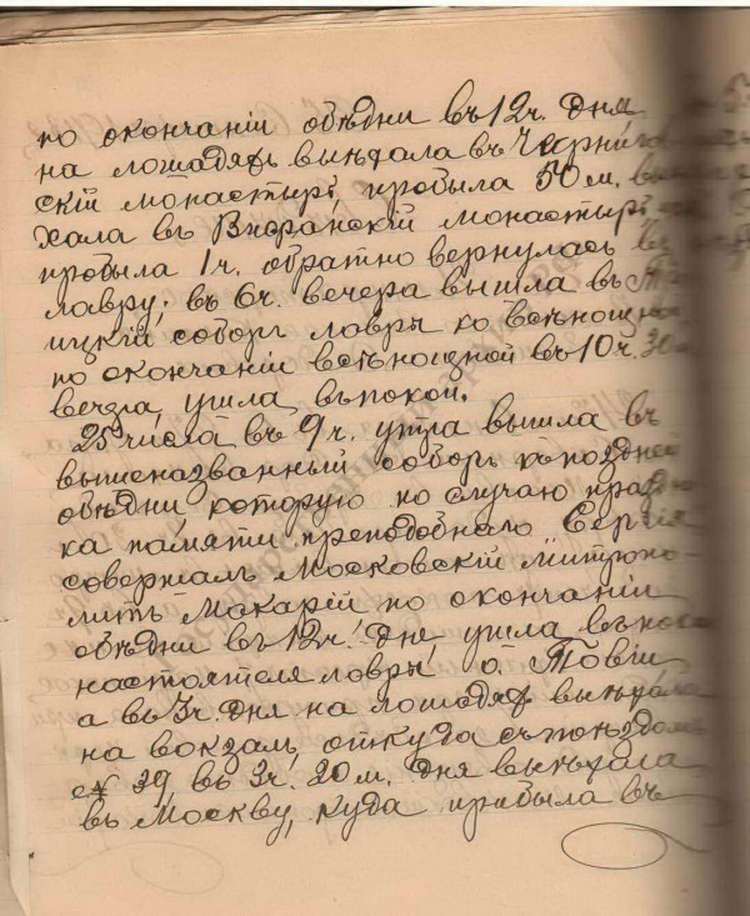 по окончаніи обѣдни въ 12 ч. дня
на лошадяхъ выѣхала въ Черниго
скій монастырь, пробыла 50 м. выѣ
хала въ Виѳанскій монастырь,
пробыла 1 ч. обратно вернулась въ
лавру; въ 6 ч. вечера вышла въ Тро
ицкій соборъ лавры ко всѣнощной
по окончаніи всѣнощной въ 10 ч. 30 м
вечера, ушла въ покои.
25 числа въ 9 ч. утра вышла въ
вышеназванный соборъ къ поздней
обѣдни, которую по случаю праздни
ка памяти преподобнаго Сергія
совершалъ Московскій Митропо-
литъ Макарій по окончаніи
обѣдни въ 12 ч. дня, ушла въ покои
настоятеля лавры о. Товіи
а въ 3 ч. дня на лошадях выѣхала
на вокзалъ, откуда съ поѣздомъ
№ 29, въ 3 ч. 20 м. дня выѣхала
въ Москву, куда прибыла въ